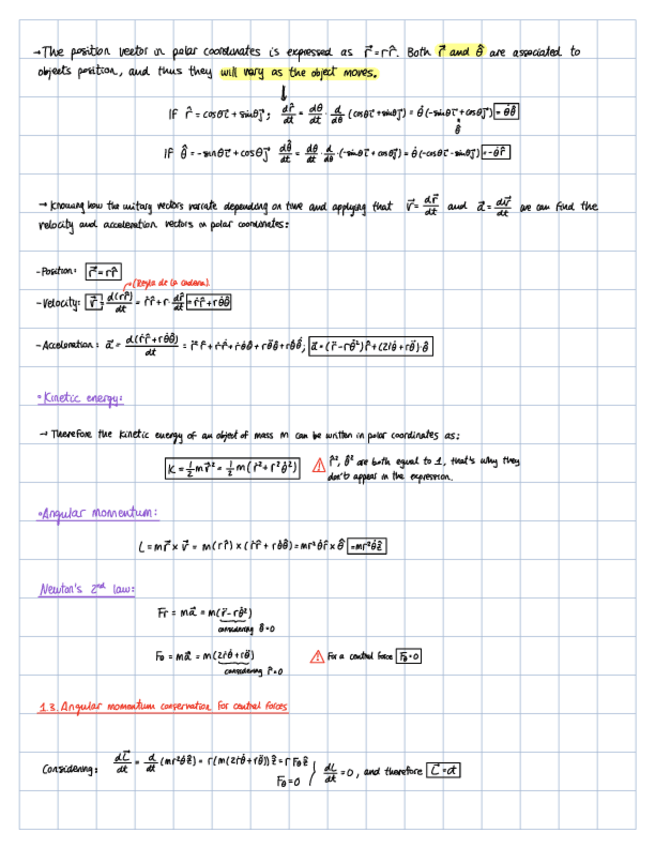 →The position vector in polar coordinates is expressed as r⃗=rr̂. Both r⃗ and θ̂ are associated to
objects position, and thus they will vary as the object moves.
IF r̂=cosθi⃗+sinθj⃗; dr̂/dt = dθ/dt · d/dθ (cosθi⃗+sinθj⃗) = θ̇(-sinθi⃗+cosθj⃗) = θ̇θ̂
θ̂
IF θ̂=-sinθi⃗+cosθj⃗ dθ̂/dt = dθ/dt · d/dθ ·(-sinθi⃗+cosθj⃗) = θ̇(-cosθi⃗-sinθj⃗) = -θ̇r̂
→ Knowing how the unitary vectors variate depending on time and applying that v⃗ = dr⃗/dt and a⃗ = dv⃗/dt we can find the
velocity and acceleration vectors in polar coordinates:
-Position: r⃗=rr̂
(Regla de la cadena)
-Velocity: v⃗ = d(rr̂)/dt = ṙr̂+r·dr̂/dt = ṙr̂+rθ̇θ̂
-Acceleration: a⃗ = d(ṙr̂+rθ̇θ̂)/dt = ; a⃗=(r̈-rθ̇²)r̂+(2ṙθ̇+rθ̈)·θ̂
•Kinetic energy:
→ Therefore the kinetic energy of an object of mass m can be written in polar coordinates as:
K = 1/2 m ṙ⃗² = 1/2 m(ṙ²+r²θ̇²) ⚠ r̂², θ̂² are both equal to 1, that's why they
don't appear in the expression.
•Angular momentum:
L = mr⃗ x v⃗ = m(rr̂) x (ṙr̂ + rθ̇θ̂) = mr²θ̇r̂ x θ̂ = mr²θ̇ẑ
Newton's 2nd law:
Fr = ma⃗ = m(r̈-rθ̇²)
considering θ̂=0
Fθ = ma⃗ = m(2ṙθ̇+rθ̈) ⚠ For a central force Fθ=0
considering r̂=0
1.3. Angular momentum conservation for central forces
Considering: dL⃗/dt = d/dt (mr²θ̇ẑ) = r(m(2ṙθ̇+rθ̈))ẑ = r Fθ ẑ
Fθ=0 } dL/dt = 0, and therefore L⃗=ct